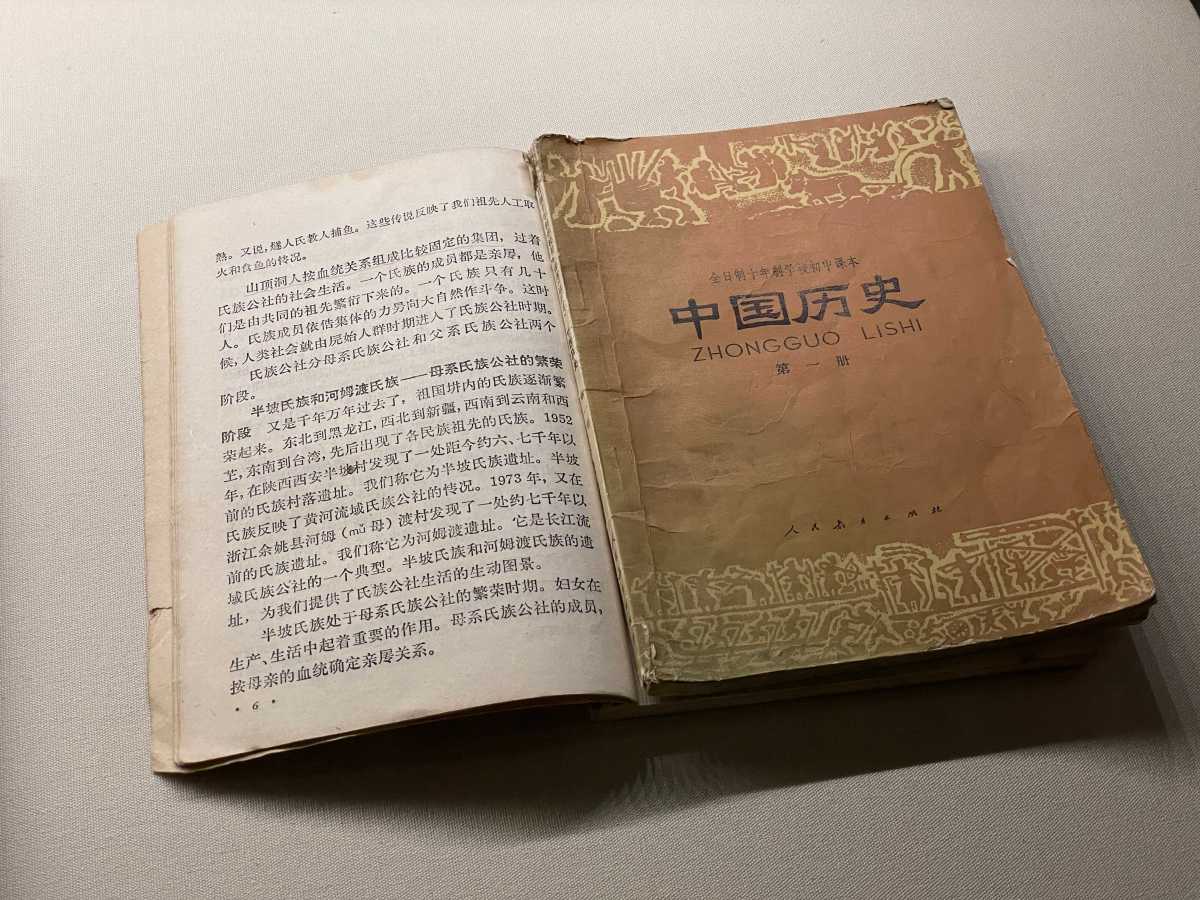 熟。又说，燧人氏教人捕鱼。这些传说反映了我们祖先人工取
火和食鱼的情况。
山顶洞人按血统关系组成比较固定的集团，过着
氏族公社的社会生活。一个氏族的成员都是亲属，他
们是由共同的祖先繁衍下来的。一个氏族只有几十
人。氏族成员依借集体的力量向大自然作斗争。这时
候，人类社会就由原始人群时期进入了氏族公社时期。
氏族公社分母系氏族公社和父系氏族公社两个
阶段。
半坡氏族和河姆渡氏族——母系氏族公社的繁荣
阶段 又是千年万年过去了，祖国境内的氏族逐渐繁
荣起来。东北到黑龙江，西北到新疆，西南到云南和西
藏，东南到台湾，先后出现了各民族祖先的氏族。1952
年，在陕西西安半坡村发现了一处距今约六、七千年以
前的氏族村落遗址。我们称它为半坡氏族遗址。半坡
氏族反映了黄河流域氏族公社的情况。1973年，又在
浙江余姚县河姆（mǔ母）渡村发现了一处约七千年以
前的氏族遗址。我们称它为河姆渡遗址。它是长江流
域氏族公社的一个典型。半坡氏族和河姆渡氏族的遗
址，为我们提供了氏族公社生活的生动图景。
半坡氏族处于母系氏族公社的繁荣时期。妇女在
生产、生活中起着重要的作用。母系氏族公社的成员，
按母亲的血统确定亲属关系。
·6·
全日制十年制学校初中课本
中国历史
ZHONGGUO LISHI
第一册
人民教育出版社